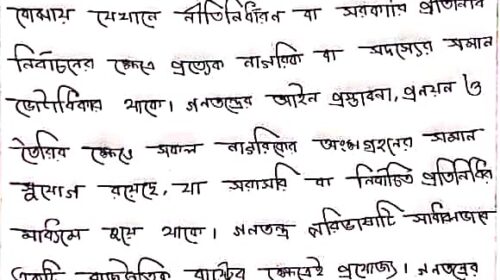 বোঝায় যেখানে নীতিনির্ধারন বা সরকারি প্রতিনিধি
নির্বাচনের ক্ষেত্রে প্রত্যেক নাগরিক বা সদস্যের সমান
ভোটাধিকার থাকে। গনতন্ত্রে আইন প্রস্তাবনা, প্রনয়ন ও
তৈরির ক্ষেত্রে সকল নাগরিকের অংশগ্রহনের সমান
সুযোগ রয়েছে, যা সরাসরি বা নির্বাচিত প্রতিনিধির
মাধ্যমে হয়ে থাকে। গনতন্ত্র পরিভাষাটি সাধারনভাবে
একটি রাজনৈতিক রাষ্ট্রের ক্ষেত্রেই প্রযোজ্য। গনতন্ত্রের